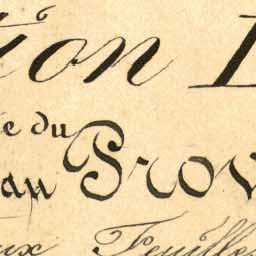 ion
e du
au Prov
ux Feuille